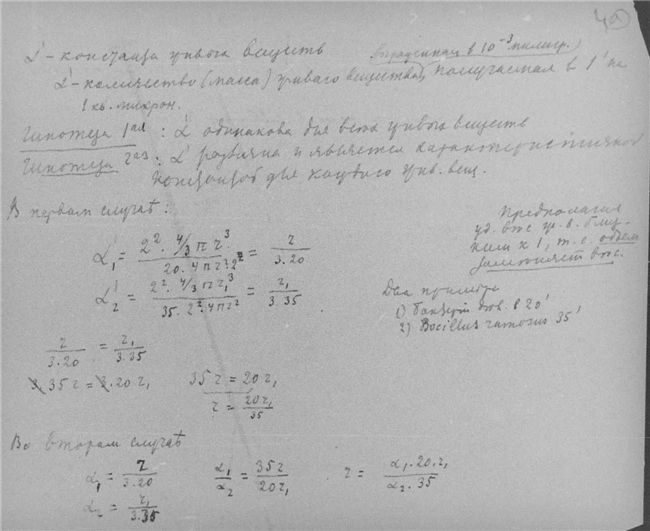 4а)
α' - константа живого веществ
(выраженная в 10⁻³ милигр.)
α' - количество (масса) живаго вещества, получаемая в 1' на
1 кв. микрон.
Гипотеза 1ая: α' одинакова для всех живого веществ
Гипотеза 2ая: α' различна и является характеристичной
константой для каждого жив. вещ.
В первом случаѣ:
Предполагая
уд. вес ж. в. близ-
ким к 1, т. е. объем
заменяет вес.
α'₁ = 2². 4/3 πr³ / 20. 4πr². 2² = r / 3.20
α'₂ = 2². 4/3 πr₁³ / 35. 2². 4πr² = r₁ / 3.35
Два примера
1) бактерия 20'
2) Bacillus ramosus 35'
r / 3.20 = r₁ / 3.35
3. 35 r = 3. 20 r₁ 35 r = 20 r₁
r = 20 r₁ / 35
Во втором случаѣ
α₁ = r / 3.20 α₁ / α₂ = 35 r / 20 r₁ r = α₁. 20. r₁ / α₂. 35
α₂ = r₁ / 3.35